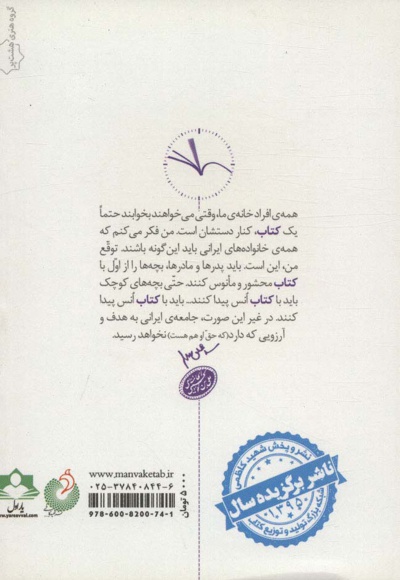 گروه هنری هشت‌پر
همه‌ی افراد خانه‌ی ما، وقتی می‌خواهند بخوابند حتماً
یک کتاب، کنار دستشان است. من فکر می‌کنم که
همه‌ی خانواده‌های ایرانی باید این‌گونه باشند. توقّع
من، این است. باید پدرها و مادرها، بچه‌ها را از اوّل با
کتاب محشور و مأنوس کنند. حتّی بچه‌های کوچک
باید با کتاب اُنس پیدا کنند... باید با کتاب اُنس پیدا
کنند. در غیر این صورت، جامعه‌ی ایرانی به هدف و
آرزویی که دارد (که حقّ او هم هست) نخواهد رسید.
نشر و پخش شهید کاظمی
ناشر برگزیده سال
۱۳۹۵
شبکه بزرگ تولید و توزیع کتاب
www.manvaketab.ir
۰۲۵-۳۷۸۴۰۸۴۴-۶
۵۰۰۰ تومان
978-600-8200-74-1
یار اول
www.yareavval.com